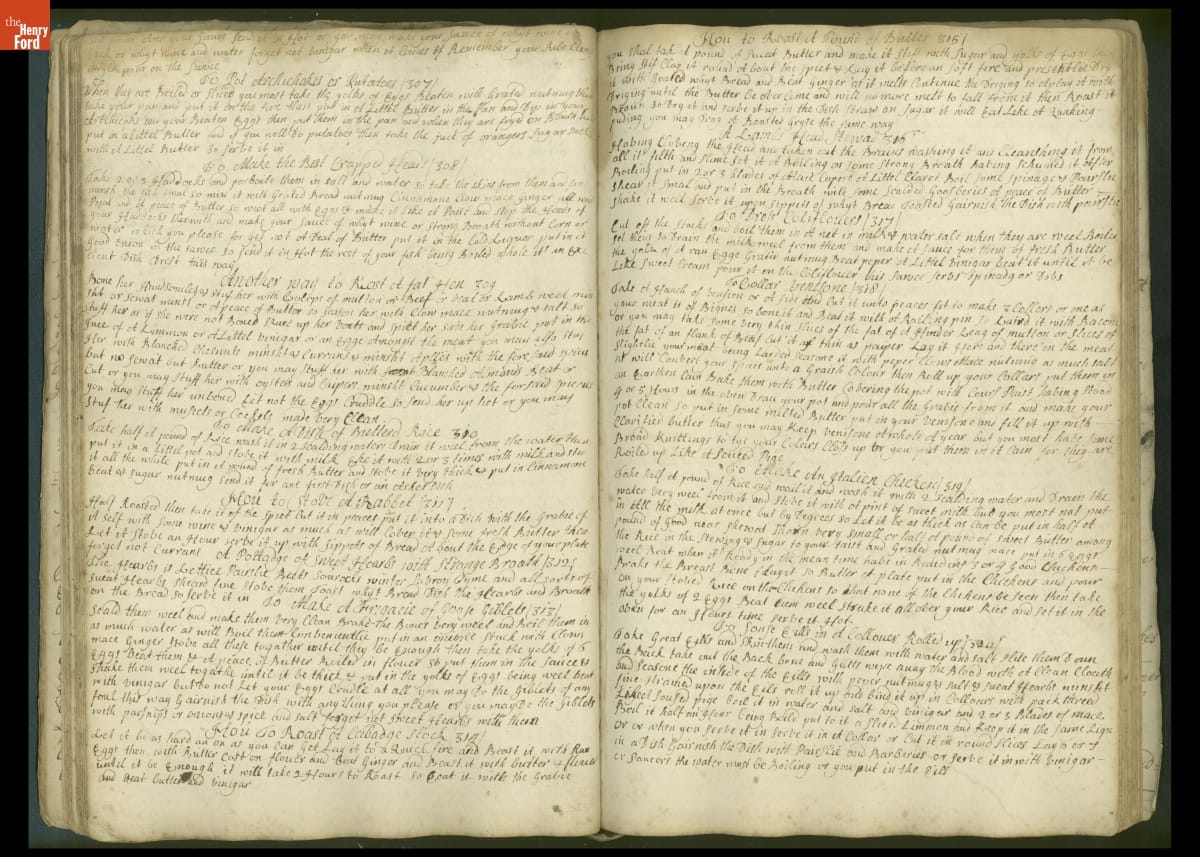 the
Henry
Ford
and water forget not vinigar when it Comes to Remember your
pour on the Sauce
To Pot Archichakes or Putatoes /307/
When they are Boiled or Sliced you most take the yolks of Eggs Beaten with Grated nutmug then
take your pan and put it on the fire then put in a Littel Butter in the Pan and Dip in your
Artichoks in your Beaten Eggs then put them in the pan and when they are fryed on Bouth Sides
put in a Littel Butter and if you will Do putatoes then take the juce of oranges Sugar Sack
with a Littel Butter So Serve it in
To Make the Best Crapped Heads /308/
Take 2 or 3 Haddocks and parboile them in Salt and water So take the Skins from them and
minsh the fish Smal So mix it with Grated Bread nutmug Cinnamone Clow mace ginger
Beat and a peace of Butter So weet all with Eggs & make it Like a Past and Stop the Heads of
your Haddocks therwith and make your Sauce of whyt wine or Strong Breath without Corn or
water which you please for get not a Deal of Butter put it in the Liquer put in a
Good Onion in the Sauce So Send it in Hot the rest of your fish being Boiled whole it an Exc
elent Dish Drest this way
Another way to Rost a fat Hen 309
Bone her & Stuf her with Coolips of mutton or Beef or Veal or Lamb weel min
sht or Sewat minst or a peace of Butter So Season her with Clow mace nutmug & Salt So
Stuff her as if she were not Boned Skure up her Vents and Spitt her Save her Gravie put in the
Juce of a Limmon or a Littel vinigar or an Egge Amongst the meat you may also Stuf
Her with Blanched Chesnuts minsht & Currans & minsht Apples with the fore said Spices
but no Sewat but Butter or you may Stuff her with Blanched Almonds Beat or
Cut or you may Stuff her with oysters and Capers minsht Cucumbers & the forsaid Spices
you may Stuff her unboned Let not the Eggs Cruddle So Send her up hot or you may
Stuf her with musels or Cockels made very Clean
To Make A Dish of Buttered Rice 310
Take half a pound of Rice wash it in 2 Scalding waters drain it weel from the water then
put it in a Littel pot and Stove it with milk Eke it with 2 or 3 times with milk and Ster
it all the while put in a pound of fresh Butter and Stove it very thick & put in Cinnamone
Beat & Sugar nutmug Send it for an first Dish or an after Dish
How to Stove A Rabbet /311/
Half Roasted then take it of the Spitt Cut it in peaces put it into a Dish with the Gravie of
it self with Some wine & vinegar as much as will Cover it & Some fresh Butter then
Let it Stove an Hour Serve it up with Sippets of Bread about the Edge of your plate
forget not Currans A Pottadge of Sweet Hearbs with Stronge Broath /312/
The Hearbs is Lettice Pairslie Beets Sourocks winter Savroy Tyme and all Sorts of
Sweat Hearbs Sheard fine Stove them Toast whyt Bread Dish the Hearbs and Broath
on the Bread So Serve it in To Make A Frigacie of Goose Gibbets /313/
Scald them weel and make them very Clean Brake the Bones very weel and Boil them in
as much water as will Boil them Conveanientlie put in an onion Stuck with Clows
mace Ginger Stove all these togather until they be Enough then take the yolks of 6
Eggs Beat them & a peace of Butter Rolled in flower So put them in the Sauce &
Shake them weel togathe until it be thick & put in the yolks of Eggs being weel beat
with vinigar but Do not Let your Eggs Crudle at all you may Do the Giblets of any
foul this way Gairnish the Dish with any thing you please or you may Do the Giblets
with parsnips or onions & Spice and Salt forget not Sweet Hearbs with them
How To Roast A Cabadge Stock 314/
Let it be as hard an on as you Can Get Lay it to a Quick fire and Beast it with Raw
Eggs then with Butter Cast on flower and Beat Ginger and Beast it with butter & flower
until it be Enough it will take 2 Hours to Roast So Eeat it with the Gravie
and Beat butter and vinegar
How to Roast A Pound of Butter 315/
you Shal take a pound of Sweat Butter and make it Stiff with Sugar and yolks of Eggs then
Being Stif Clap it round about the Spitt & Lay it before an Soft fire and presentlie Drig
it with Grated whyt Bread and Beat ginger as it melts Continue the Driging So a play it with
Driging until the Butter be over Come and will no more melt to fall from it then Roast it
Brown So Dry it and Serve it up in the Dish Strawn on Sugar it will Eat Like a Quaking
puding you may Drag a Roasted Gryse the same way
A Lambs Head Stewad 316
Having Cloveng the Head and taken out the Brains washing it and Cleanshing it from
all it filth and Slime Set it a Boiling in Some Strong Breath having Schumed it after
Boiling put in 2 or 3 blades of Mace Capers a Littel Claret Boil Some Spinage & Pairslie
Shear it Small and put in the Breath with Some Scalded Goosberies a peace of Butter
Shake it weel Serve it upon Sippets of whyt Bread Toasted Gairnish the Dish with pairslie
To Dress Coliflower /317/
Cut off the Stocks and boil them in a net in milk & water Salt when they are weel Boiled
Set them to Drain the milk weel from them and make a Sauce for them a fresh Butter
the yolk of a ran Egge Gratie nutmug Beat peper a Littel vinigar beat it until it be
Like Sweet Cream pour it on the Coliflower this Sauce Serves Spinadg or
To Collar Venisone /318/
Take a Hanch of venison or a Side and Cut it into peaces fit to make 2 Collors or one as
your meat is of Bignes So bone it and Beat it with a Roiling pin & Laird it with Bacone
or you may take Some very thin Slices of the fat of a Hinder Leag of mutton or slices of
the fat of an flank of Beef Cut it as thin as paiper Lay it Here and there on the meat
Slightlie your meat being Larded Seasone it with peper Clows mace nutmug as much Salt
as will Convert your Spices unto a Graish Colour then Roll up your Collars put them in
an Earthen Cain Bake them with Butter Covering the pot with Cours Past having Stood
4 or 5 Hours in the oven Drau your pot and pour all the Gravie from it and make your
pot Clean So put in Some melted Butter put in your Venisone and fill it up with
Clarified Butter thus you may keep venisone a whole of year but you most have Some
Broad Knittings to tye your Colars Closs up by you put them in a Cain for they are
Rolled up Like a Souced Pige
To Make An Italien Chicken /319/
Take half a pound of Rice and wail it and wash it with 2 Scalding water and Drain the
water very weel from it and Stove it with a pint of Sweet milk but you most not put
in All the milk at once but by Degrees So Let it be as thick as Can be put in half of
pound of Good near very Small or half a pound of Sweet Butter among
the Rice in the Stewing & Sugar to your taist and Grated nutmug mace put in 6 Eggs
weel Beat when it Ready in the mean time have in Readienes 3 or 4 Good Chickens
Brake the Breast Bone flayet So Butter a plate put in the Chickens and pour
on your Stoved Rice on the Chickens So that none of the Chickens be Seen then take
the yolks of 2 Eggs Beat them weel Strake it all over your Rice and Set it in the
oven for an Hours time Serve it Hot
To Souse Eills in A Colloner Rolled up /320/
Take Great Eills and Skin them and wash them with water and Salt Slite them Down
the Back take out the Back bone and Gutts wipe away the Blood with a Clean Cloath
and Seasone the inside of the Eills with peper nutmug & Salt & Sweat Hearbs minsht
fine Strawed upon the Eils roll it up and bind it up in Collours with pack threed
Like a Soused pige Boil it in water and Salt and vinigar and 2 or 3 Blades of mace
Boil it half an Hour being Boild put to it a Slited Limmon and keep it in the Same Liqu
or or when you Serve it in Serve it in a Collar or Cut it in round Slices Lay 6 or 7
in a Dish Gairnish the Dish with Pairslie and Barberies or Serve it in with vinigar
or Saucers the water most be Boiling or you put in the Eills